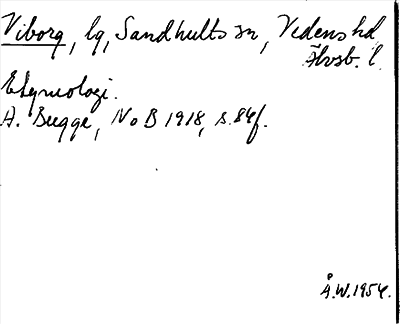 Viborg, lg, Sandhults sn, Vedens hd
Älvsb. l.
Etymologi.
A. Bugge, NoB 1918, s. 84f.
Å.W. 1954.